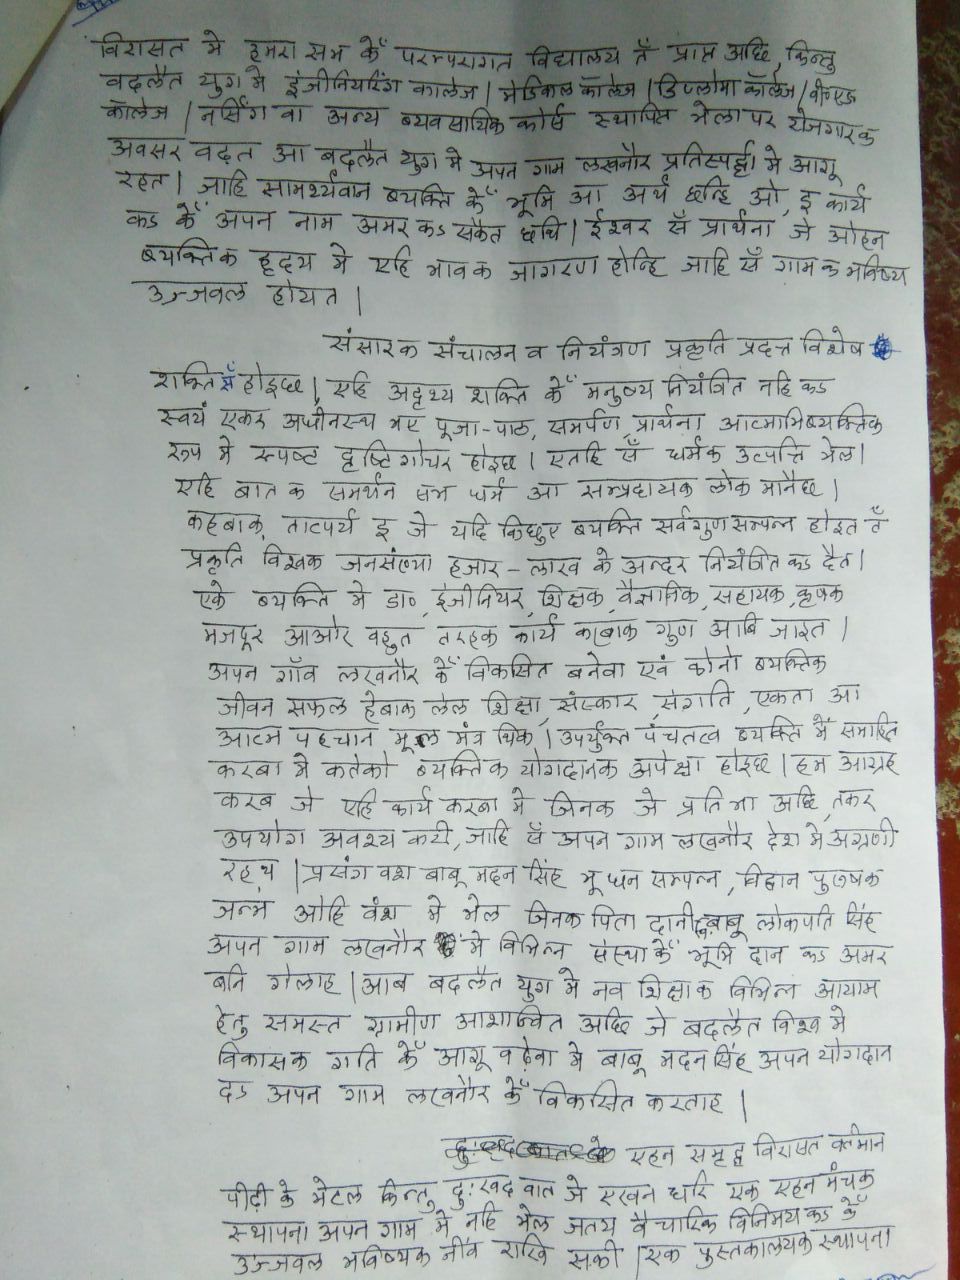 विरासत मे हमरा सभ केँ परम्परागत विद्यालय तँ प्राप्त अछि, किन्तु
बदलैत युग मे इंजीनियरिंग कालेज / मेडिकल कॉलेज / डिप्लोमा कॉलेज / बीएड
कॉलेज / नर्सिंग वा अन्य ब्यवसायिक कोर्स स्थापित भेला पर रोजगारक
अवसर बढ़त आ बदलैत युग मे अपन गाम लखनौर प्रतिस्पर्द्धा मे आगू
रहत। जाहि सामर्थ्यवान ब्यक्ति केँ भूमि आ अर्थ छन्हि ओ, इ कार्य
कऽ केँ अपन नाम अमर कऽ सकैत छथि। ईश्वर सँ प्रार्थना जे ओहन
ब्यक्तिक हृदय मे एहि भावक जागरण होन्हि जाहि सँ गामक भविष्य
उज्जवल होयत।
संसारक संचालन व नियंत्रण प्रकृति प्रदत्त विशेष
शक्ति सँ होइछ। एहि अदृश्य शक्ति केँ मनुष्य नियंत्रित नहि कऽ
स्वयं एकर अधीनस्थ भए पूजा-पाठ, समर्पण, प्रार्थना आत्माभिब्यक्तिक
रूप मे स्पष्ट दृष्टिगोचर होइछ। एतहि सँ धर्मक उत्पत्ति भेल।
एहि बातक समर्थन सभ धर्म आ सम्प्रदायक लोक मानैछ।
कहबाक तात्पर्य इ जे यदि किछुए ब्यक्ति सर्वगुण सम्पन्न होइत तँ
प्रकृति विश्वक जनसंख्या हजार-लाख के अन्दर नियंत्रित कऽ दैत।
एके ब्यक्ति मे डा०, इंजीनियर, शिक्षक, वैज्ञानिक, सहायक, कृषक
मजदूर आओर बहुत तरहक कार्य करबाक गुण आबि जाइत।
अपन गाँव लखनौर केँ विकसित बनेबा एवं कोनो ब्यक्तिक
जीवन सफल हेबाक लेल शिक्षा, संस्कार, संगति, एकता आ
आत्म पहचान मूल मंत्र थिक। उपर्युक्त पंचतत्व ब्यक्ति मेँ समाहित
करबा मे कतेको ब्यक्तिक योगदानक अपेक्षा होइछ। हम आग्रह
करब जे एहि कार्य करबा मे जिनक जे प्रतिभा अछि, तकर
उपयोग अवश्य करी, जाहि सँ अपन गाम लखनौर देश मे अग्रणी
रहय। प्रसंग वश बाबू मदन सिंह भू धन सम्पन्न, विद्वान पुरुषक
जन्म ओहि वंश मे भेल जिनक पिता दानी बाबू लोकपति सिंह
अपन गाम लखनौर मे विभिन्न संस्था केँ भूमि दान कऽ अमर
बनि गेलाह। आब बदलैत युग मे नव शिक्षाक विभिन्न आयाम
हेतु समस्त ग्रामीण आशान्वित अछि जे बदलैत विश्व मे
विकासक गति केँ आगू बढ़ेबा मे बाबू मदन सिंह अपन योगदान
दऽ अपन गाम लखनौर केँ विकसित करताह।
एहन समृद्ध विरासत वर्तमान
पीढ़ी के भेटल किन्तु दुःखद बात जे एखन धरि एक एहन मंचक
स्थापना अपन गाम मे नहि भेल जतय वैचारिक विनिमय कऽ केँ
उज्जवल भविष्यक नींव राखि सकी। एक पुस्तकालयक स्थापना